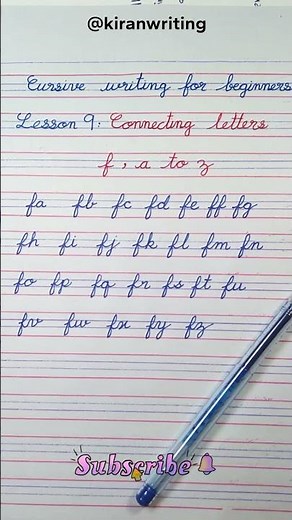 @kiranwriting
Cursive writing for beginners
Lesson 9: Connecting letters
f, a to z
fa fb fc fd fe ff fg
fh fi fj fk fl fm fn
fo fp fq fr fs ft fu
fv fw fx fy fz
Subscribe